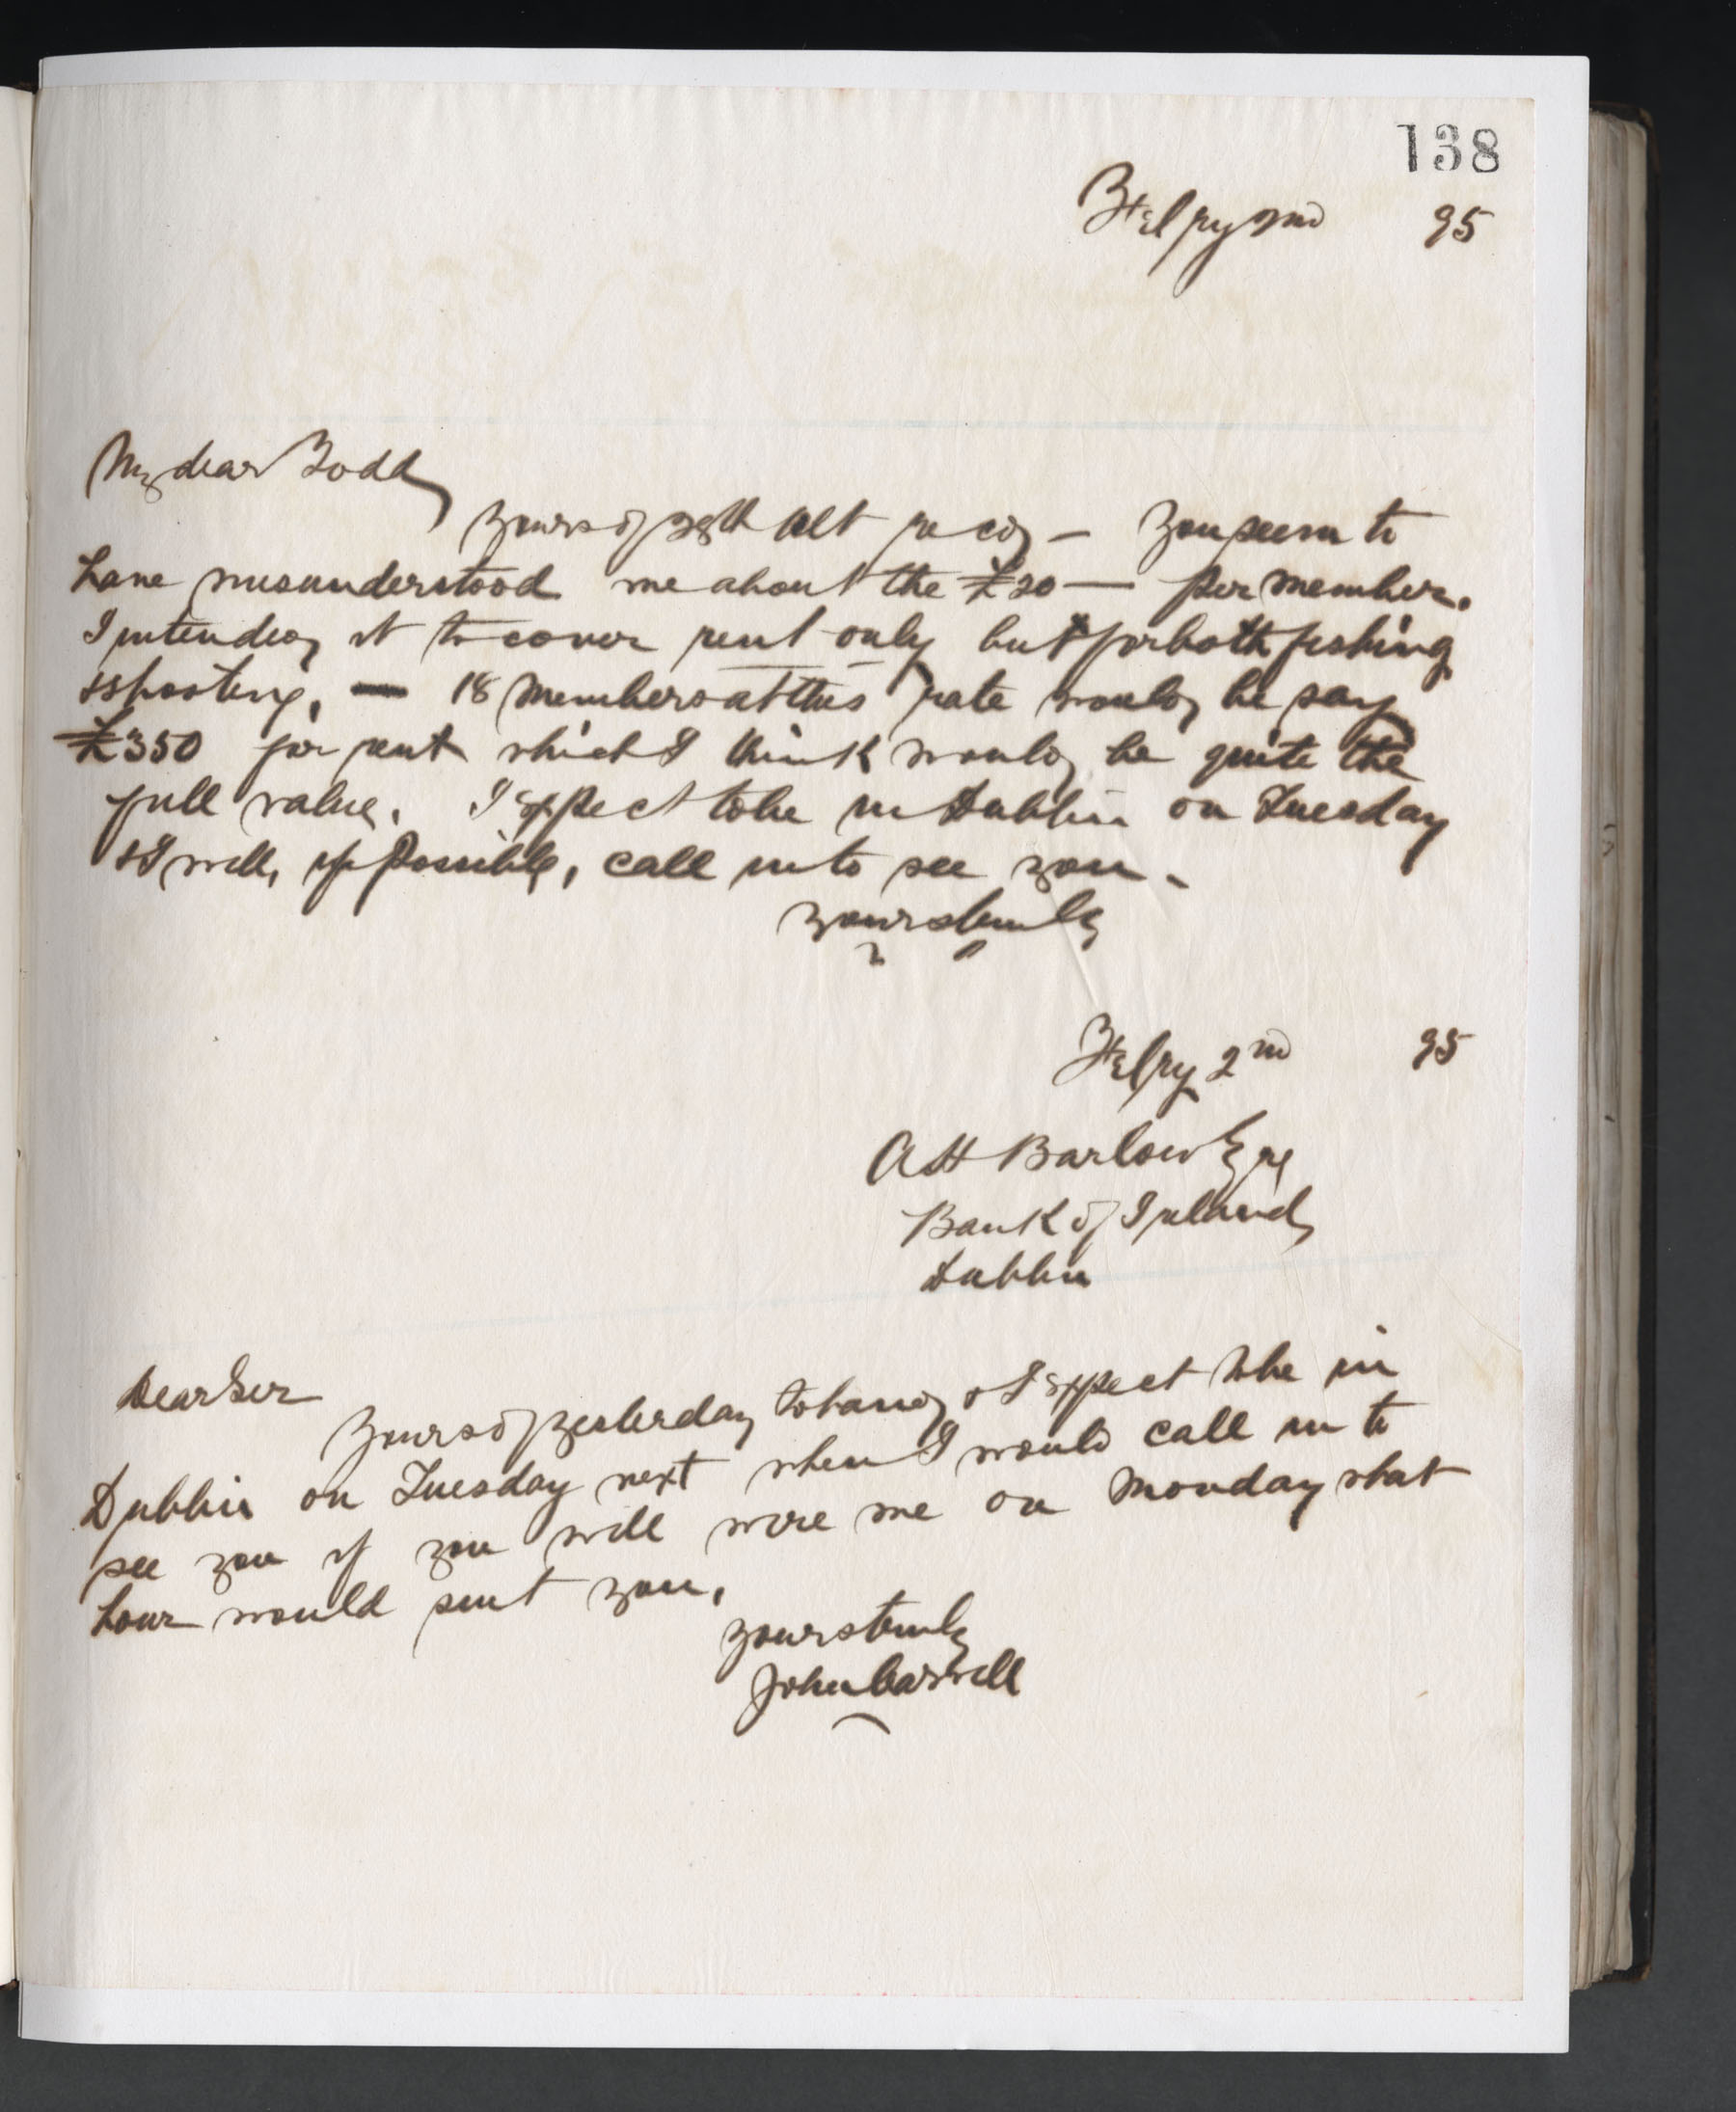 138
Feby 2nd 95
My dear Todd
Yours of 28th ult recd — You seem to
have misunderstood me about the £20 — per member.
I intended it to cover rent only but for both fishing
& shooting. — 18 members at this rate would be say
£350 for rent which I think would be quite the
full value. I expect to be in Dublin on Tuesday
& I will, if possible, call in to see you.
Yours truly
Feby 2nd 95
A H Barlow Esqre
Bank of Ireland
Dublin
Dear Sir
Yours of yesterday to hand & I expect to be in
Dublin on Tuesday next when I would call in to
see you if you will wire me on Monday what
hour would suit you.
Yours truly
John